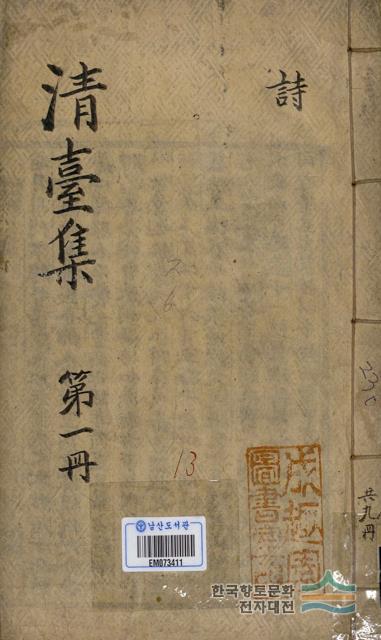 詩
清臺集 第一冊
共九冊
13
남산도서관
EM073411
한국향토문화
전자대전